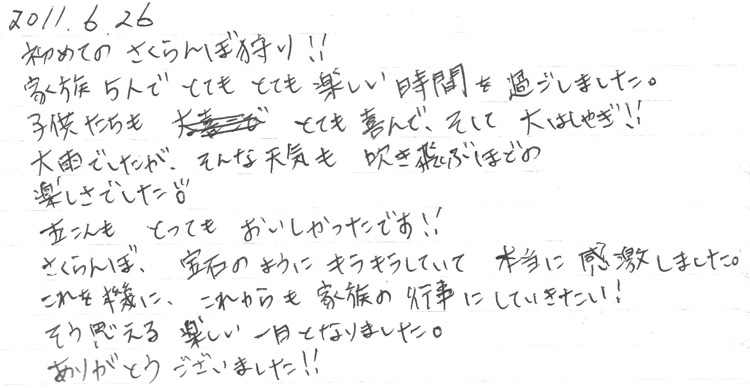 2011.6.26
初めてのさくらんぼ狩り!!
家族5人でとてもとても楽しい時間を過ごしました。
子供たちも とても喜んで、そして大はしゃぎ!!
大雨でしたが、そんな天気も吹き飛ぶほどの
楽しさでした!!
とってもおいしかったです!!
さくらんぼ、宝石のようにキラキラしていて本当に感激しました。
これを機に、これからも家族の行事にしていきたい!
そう思える楽しい一日となりました。
ありがとうございました!!